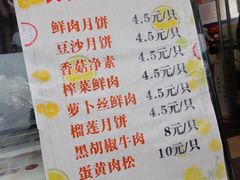 鲜肉月饼 4.5元/只
豆沙月饼 4.5元/只
香菇净素 4.5元/只
榨菜鲜肉 4.5元/只
萝卜丝鲜肉 4.5元/只
榴莲月饼 8元/只
黑胡椒牛肉 10元/只
蛋黄肉松